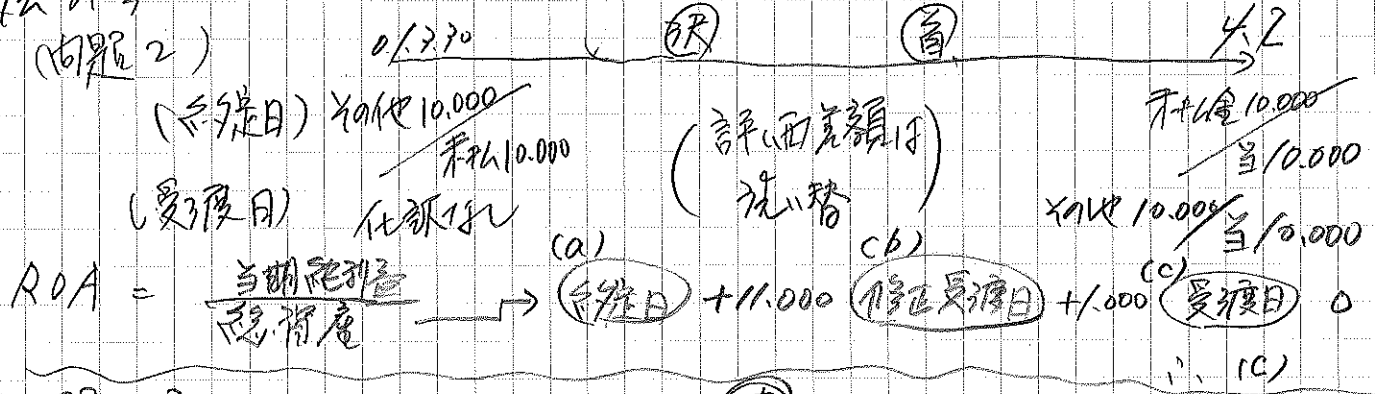 (問題2)
0/.3.30 決 首 4/2
(約定日) その他10,000/未払10,000
(評価差額は洗い替)
未払金10,000/当10,000
(受渡日) 仕訳なし
その他10,000/当10,000
ROA = 当期純利益/総資産 → (a)約定日 +11,000 (b)修正受渡日 +1,000 (c)受渡日 0
∴ (C)